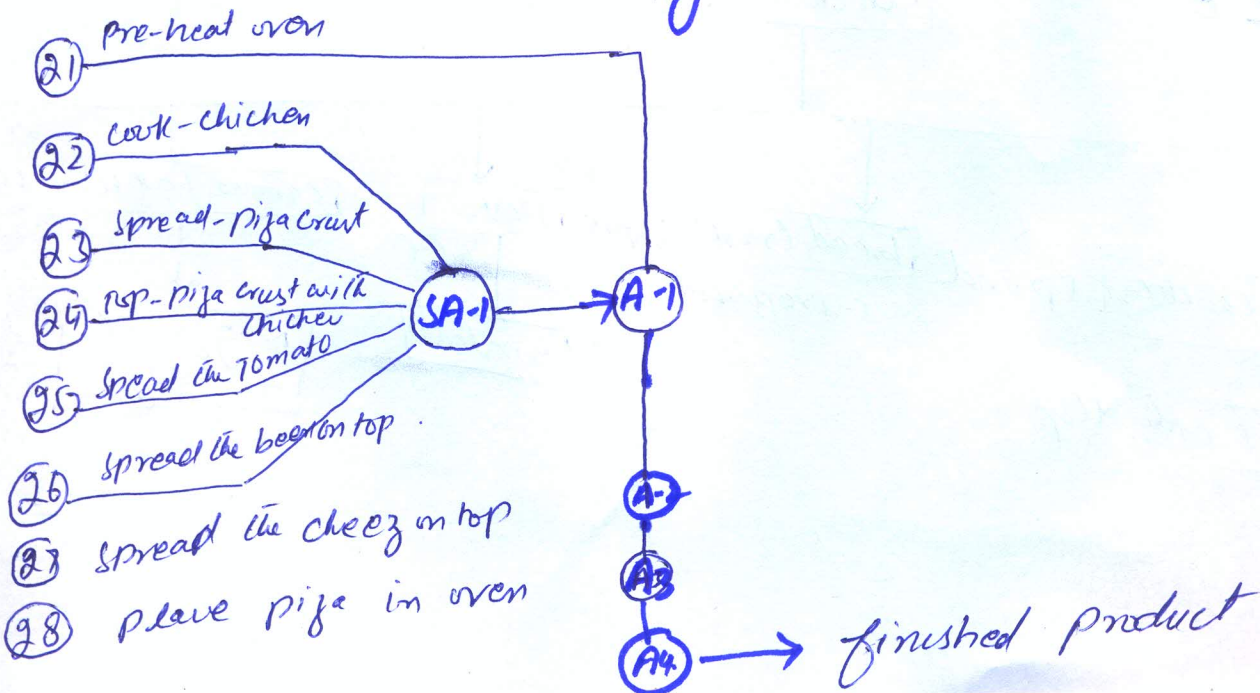 21 Pre-heat oven
22 Cook-chicken
23 Spread-pizacrust
24 Top-piza crust with
chicken
SA-1
A-1
25 Spead the Tomato
26 Spread the on top
A-2
27 Spread the cheez on top
A3
28 Place piza in oven
A4
finished product